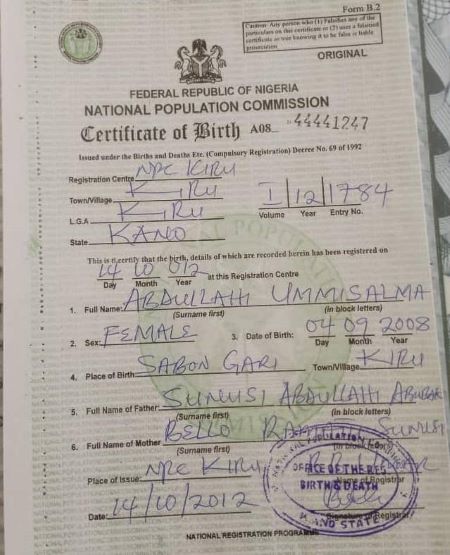 Form B.2
Caution: Any person who (1) Falsifies any of the
particulars on this certificate or (2) uses a falsified
certificate as true knowing it to be false is liable
prosecution
ORIGINAL
FEDERAL REPUBLIC OF NIGERIA
NATIONAL POPULATION COMMISSION
Certificate of Birth A08 44441247
Issued under the Births and Deaths Etc. (Compulsory Registration) Decree No. 69 of 1992
Registration Centre NPC KIRU
Town/Village KIRU
I 12 1784
L.G.A KIRU
Volume Year Entry No.
State KANO
This is to certify that the birth, details of which are recorded herein has been registered on
14 10 012 at this Registration Centre
Day Month Year
1. Full Name: ABDULLAHI UMMISALMA
(Surname first) (in block letters)
2. Sex: FEMALE 3. Date of Birth: 04 09 2008
Day Month Year
4. Place of Birth SABON GARI Town/Village KIRU
5. Full Name of Father SUNUSI ABDULLAHI ABUBAKAR
(Surname first) (in block letters)
6. Full Name of Mother BELLO SUNUSI
(Surname first)
Place of Issue: NPC KIRU
Name of Registrar
OFFICE OF THE REG
BIRTH & DEATH
Date: 14/10/2012
Signature of Registrar
KANO STATE
NATIONAL REGISTRATION PROGRAMME